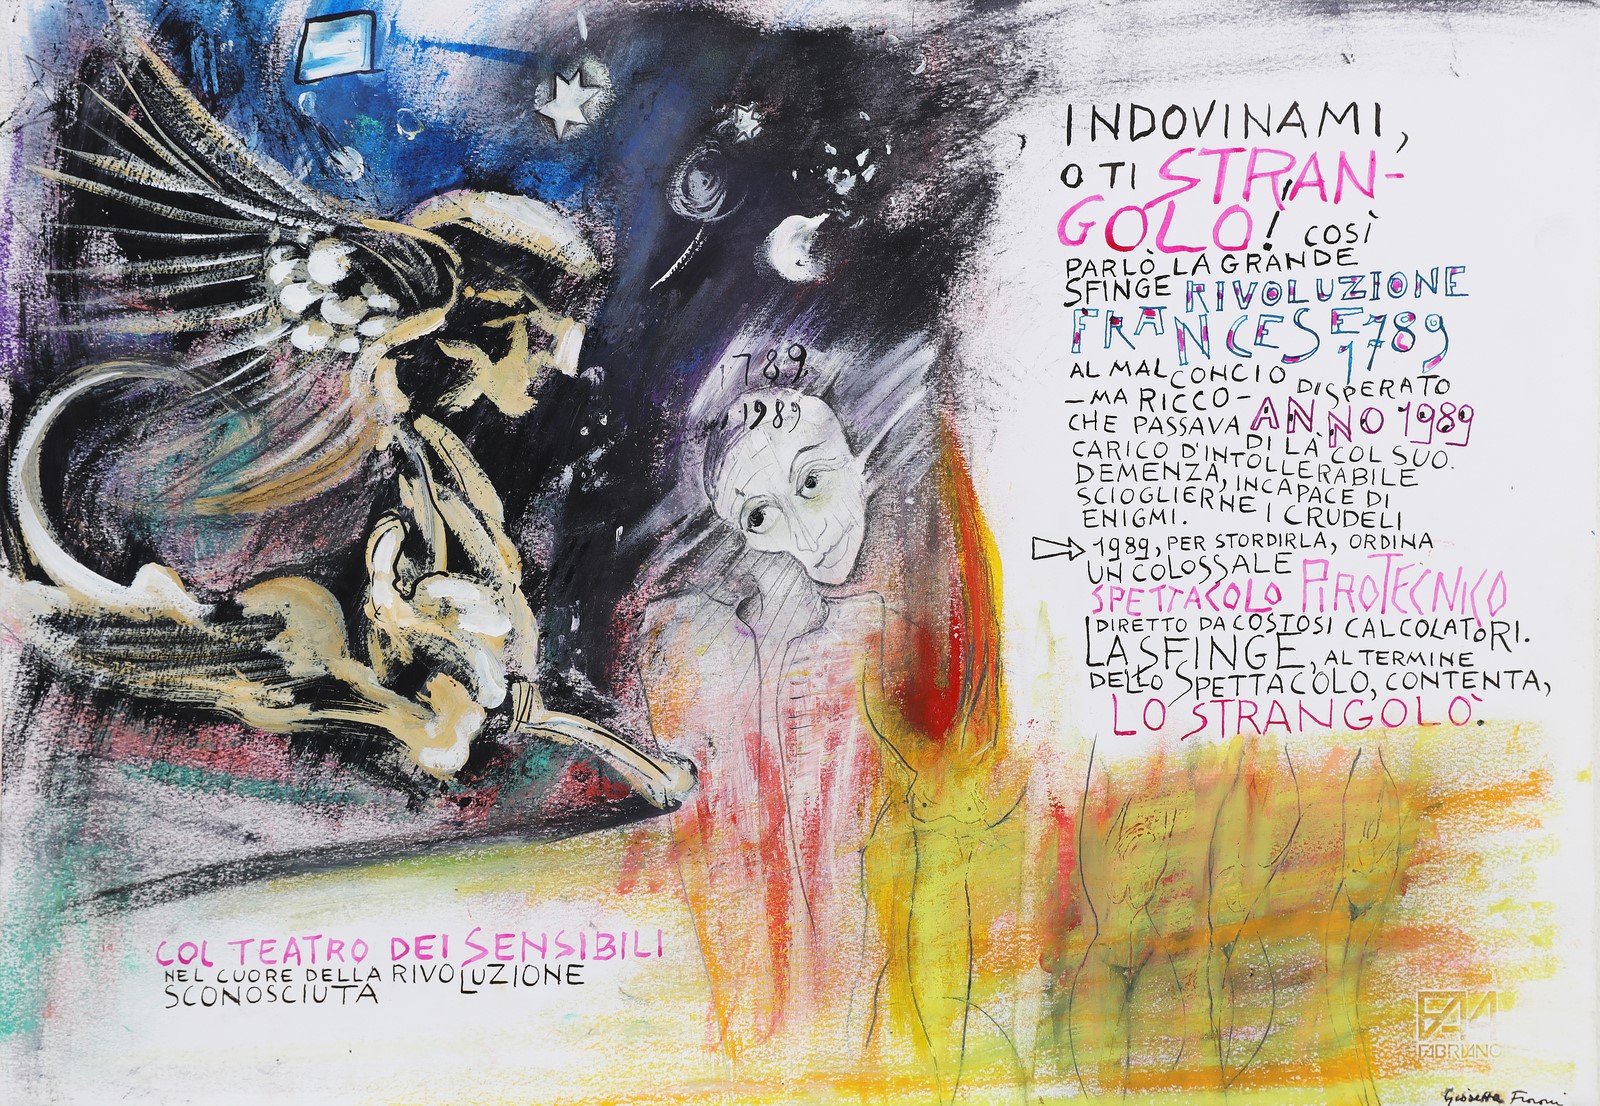 1789
1989
INDOVINAMI,
O TI STRAN-
GOLO! COSÌ
PARLÒ LA GRANDE
SFINGE RIVOLUZIONE
FRANCESE 1789
AL MAL CONCIO DISPERATO
- MA RICCO -
CHE PASSAVA ANNO 1989
DI LÀ COL SUO
CARICO D'INTOLLERABILE
DEMENZA, INCAPACE DI
SCIOGLIERNE I CRUDELI
ENIGMI.
1989, PER STORDIRLA, ORDINA
UN COLOSSALE
SPETTACOLO PIROTECNICO
DIRETTO DA COSTOSI CALCOLATORI.
LA SFINGE, AL TERMINE
DELLO SPETTACOLO, CONTENTA,
LO STRANGOLÒ.
COL TEATRO DEI SENSIBILI
NEL CUORE DELLA RIVOLUZIONE
SCONOSCIUTA
FABRIANO
Giosetta Fioroni